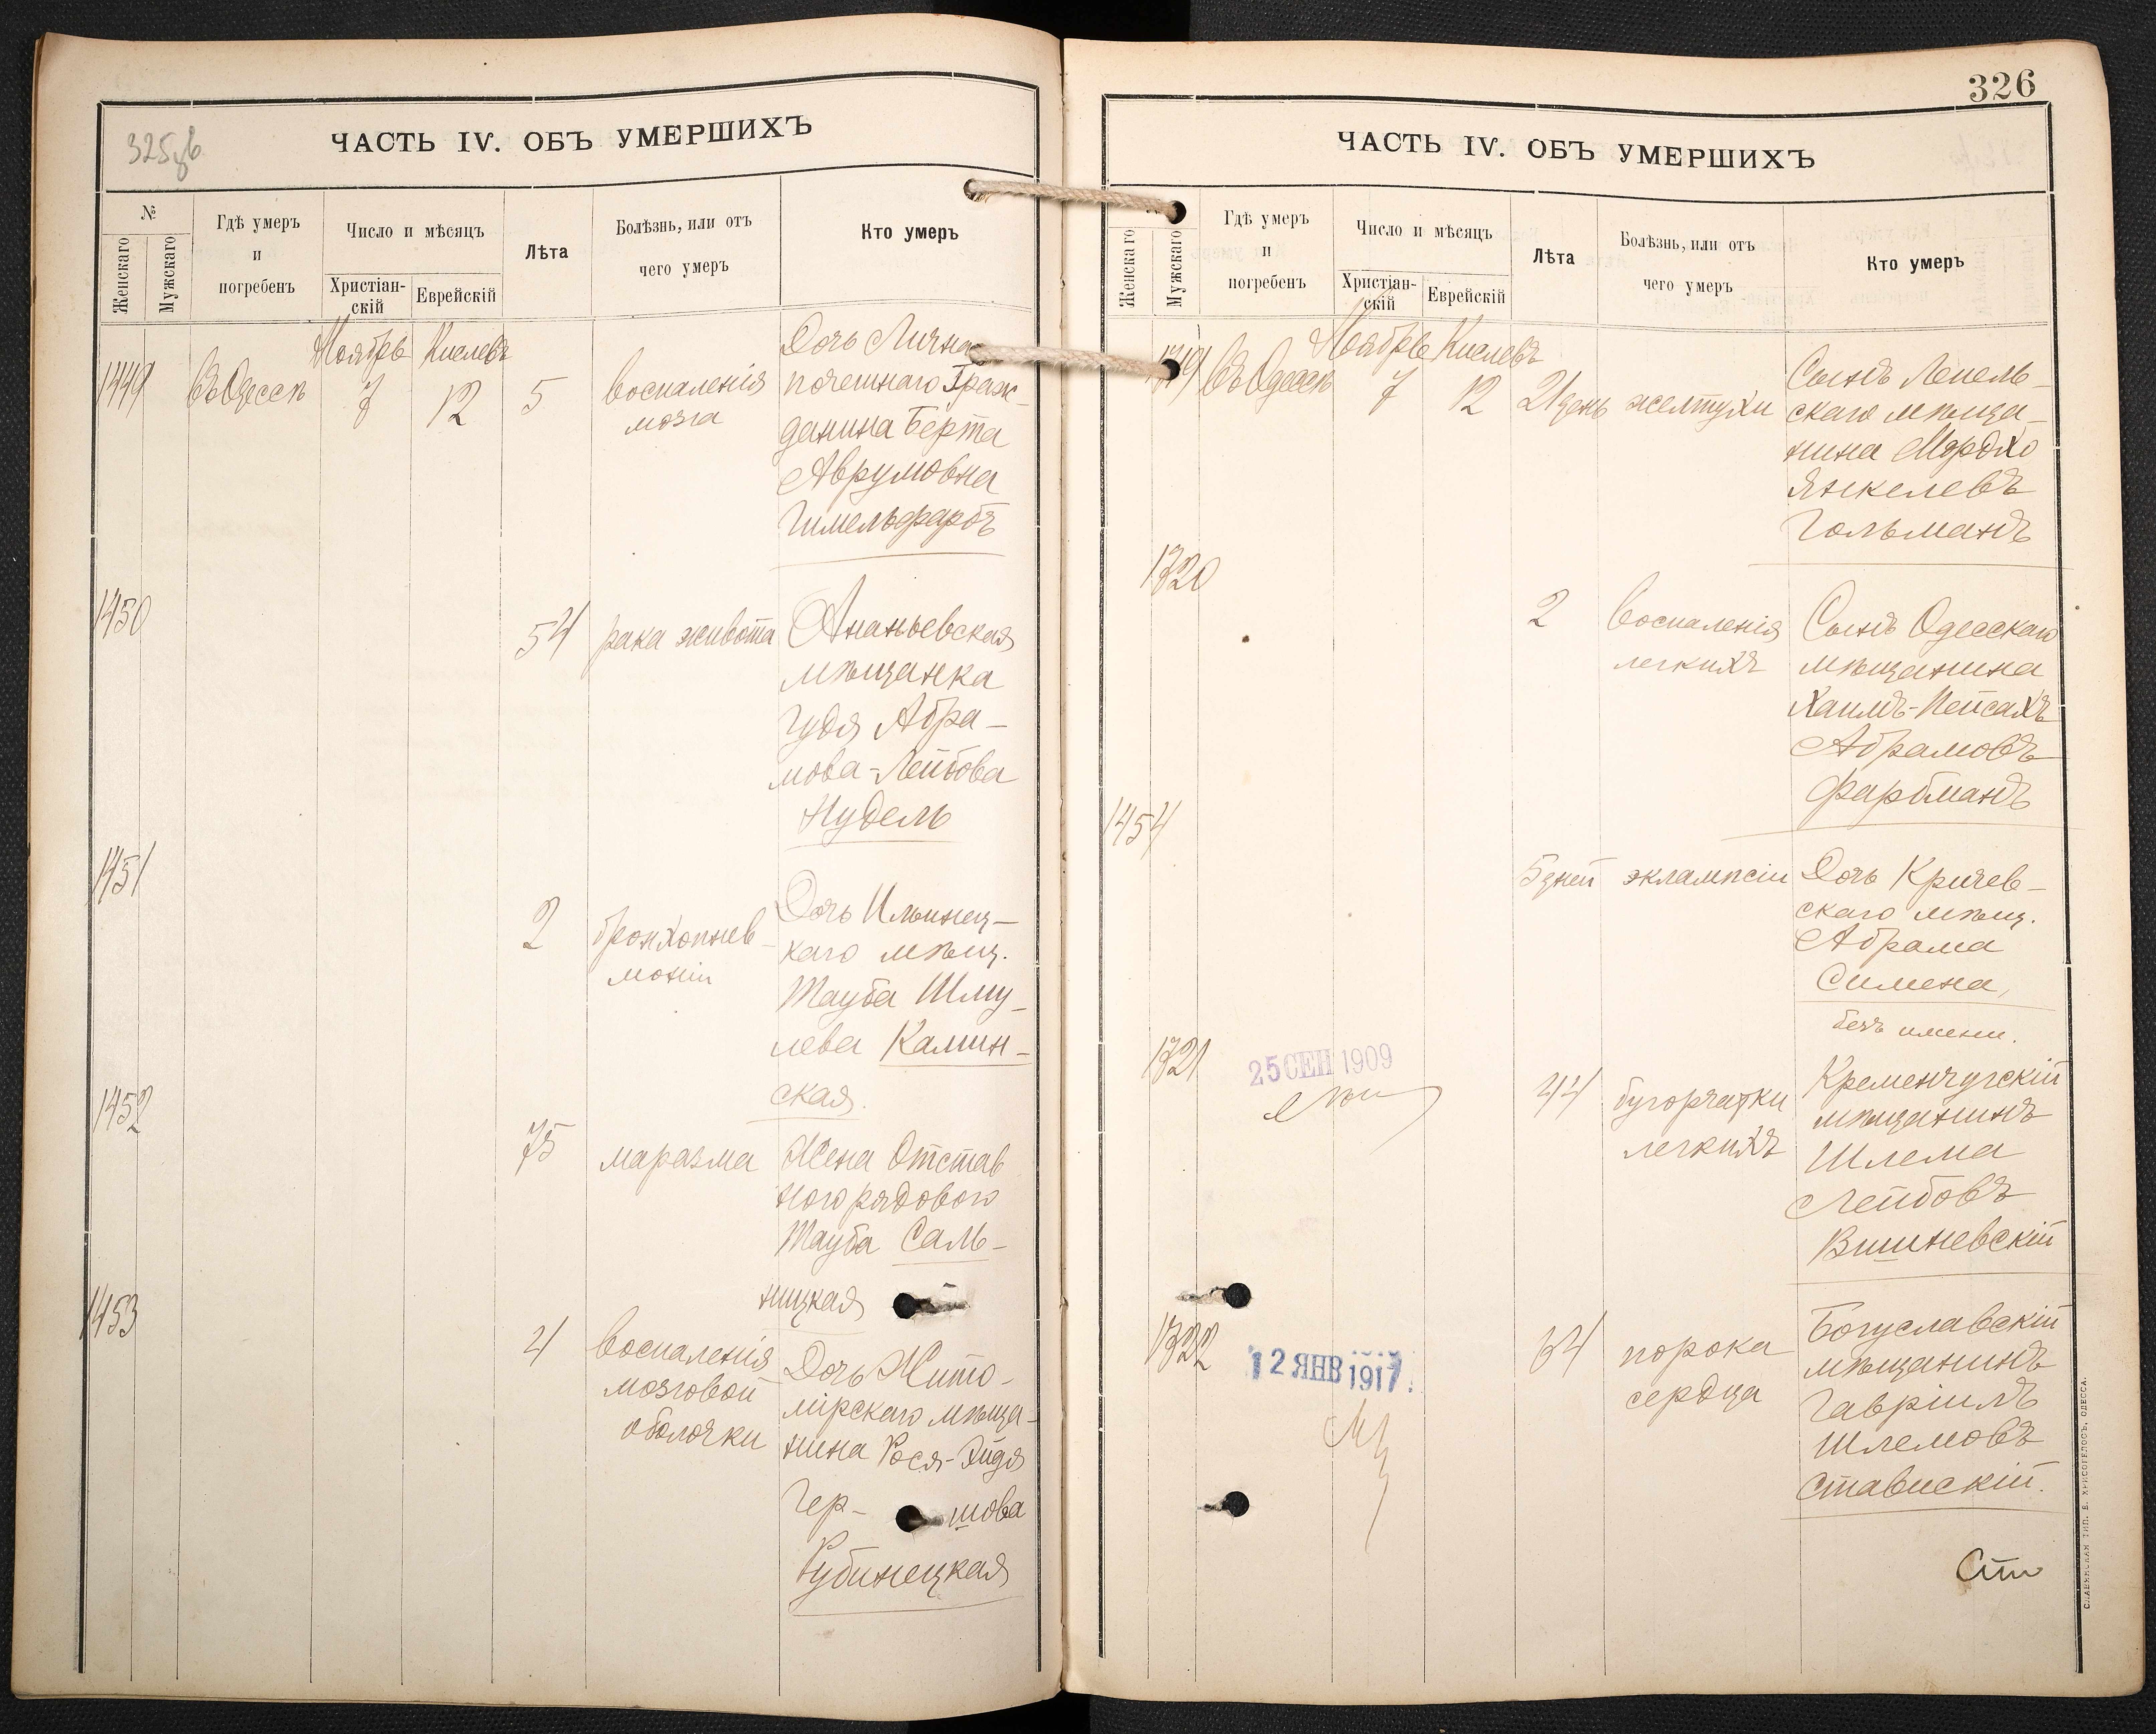 325 об
ЧАСТЬ IV. ОБЪ УМЕРШИХЪ
№
Женскаго
Мужскаго
Гдѣ умеръ
и
погребенъ
Число и мѣсяцъ
Христіан-
скій
Еврейскій
Лѣта
Болѣзнь, или отъ
чего умеръ
Кто умеръ
Ноябрь Кислевъ
1449 Въ Одессѣ 7 12 5 воспаленія
мозга
Дочь Лична
почетнаго Граж-
данина Берта
Аврумовна
Гимельфарбъ
1450
54 рака живота Ананьевская
мѣщанка
Гудя Абра-
мова-Лейбова
Нудель
1451
2 бронхопнев-
моніи
Дочь Ильинец-
каго мѣщ.
Тауба Шму-
лева Камин-
ская.
1452
75 маразма Жена Отстав
ного рядового
Тауба Саль-
ницкая
1453
4 воспаленія
мозговой
оболочки
Дочь Жито-
мірскаго мѣща-
нина Рося-Эйдя
Гер- шова
Рубинецкая
326
ЧАСТЬ IV. ОБЪ УМЕРШИХЪ
Женскаго
Мужскаго
Гдѣ умеръ
и
погребенъ
Число и мѣсяцъ
Христіан-
скій
Еврейскій
Лѣта
Болѣзнь, или отъ
чего умеръ
Кто умеръ
Ноябрь Кислевъ
1319 Въ Одессѣ 7 12 21 день желтухи
Сынъ Лепель-
скаго мѣща-
нина Мордхо
Янкелевъ
Гольманъ
1320
2 воспаленія
легкихъ
Сынъ Одесскаго
мѣщанина
Хаимъ-Пейсахъ
Абрамовъ
Фарбманъ
1454
5 дней эклампсіи Дочь Кричев-
скаго мѣщ.
Абрама
Симена,
безъ имени.
1321
25 СЕН 1909
44 бугорчатки
легкихъ
Кременчугскій
мѣщанинъ
Шлема
Лейбовъ
Вишневскій
1322
12 ЯНВ 1917.
64 порока
сердца
Богуславскій
мѣщанинъ
Гавріилъ
Шлемовъ
Ставискій.
СЛАВЯНСКАЯ ТИП. Е. ХРИСОГЕЛОСЪ, ОДЕССА.